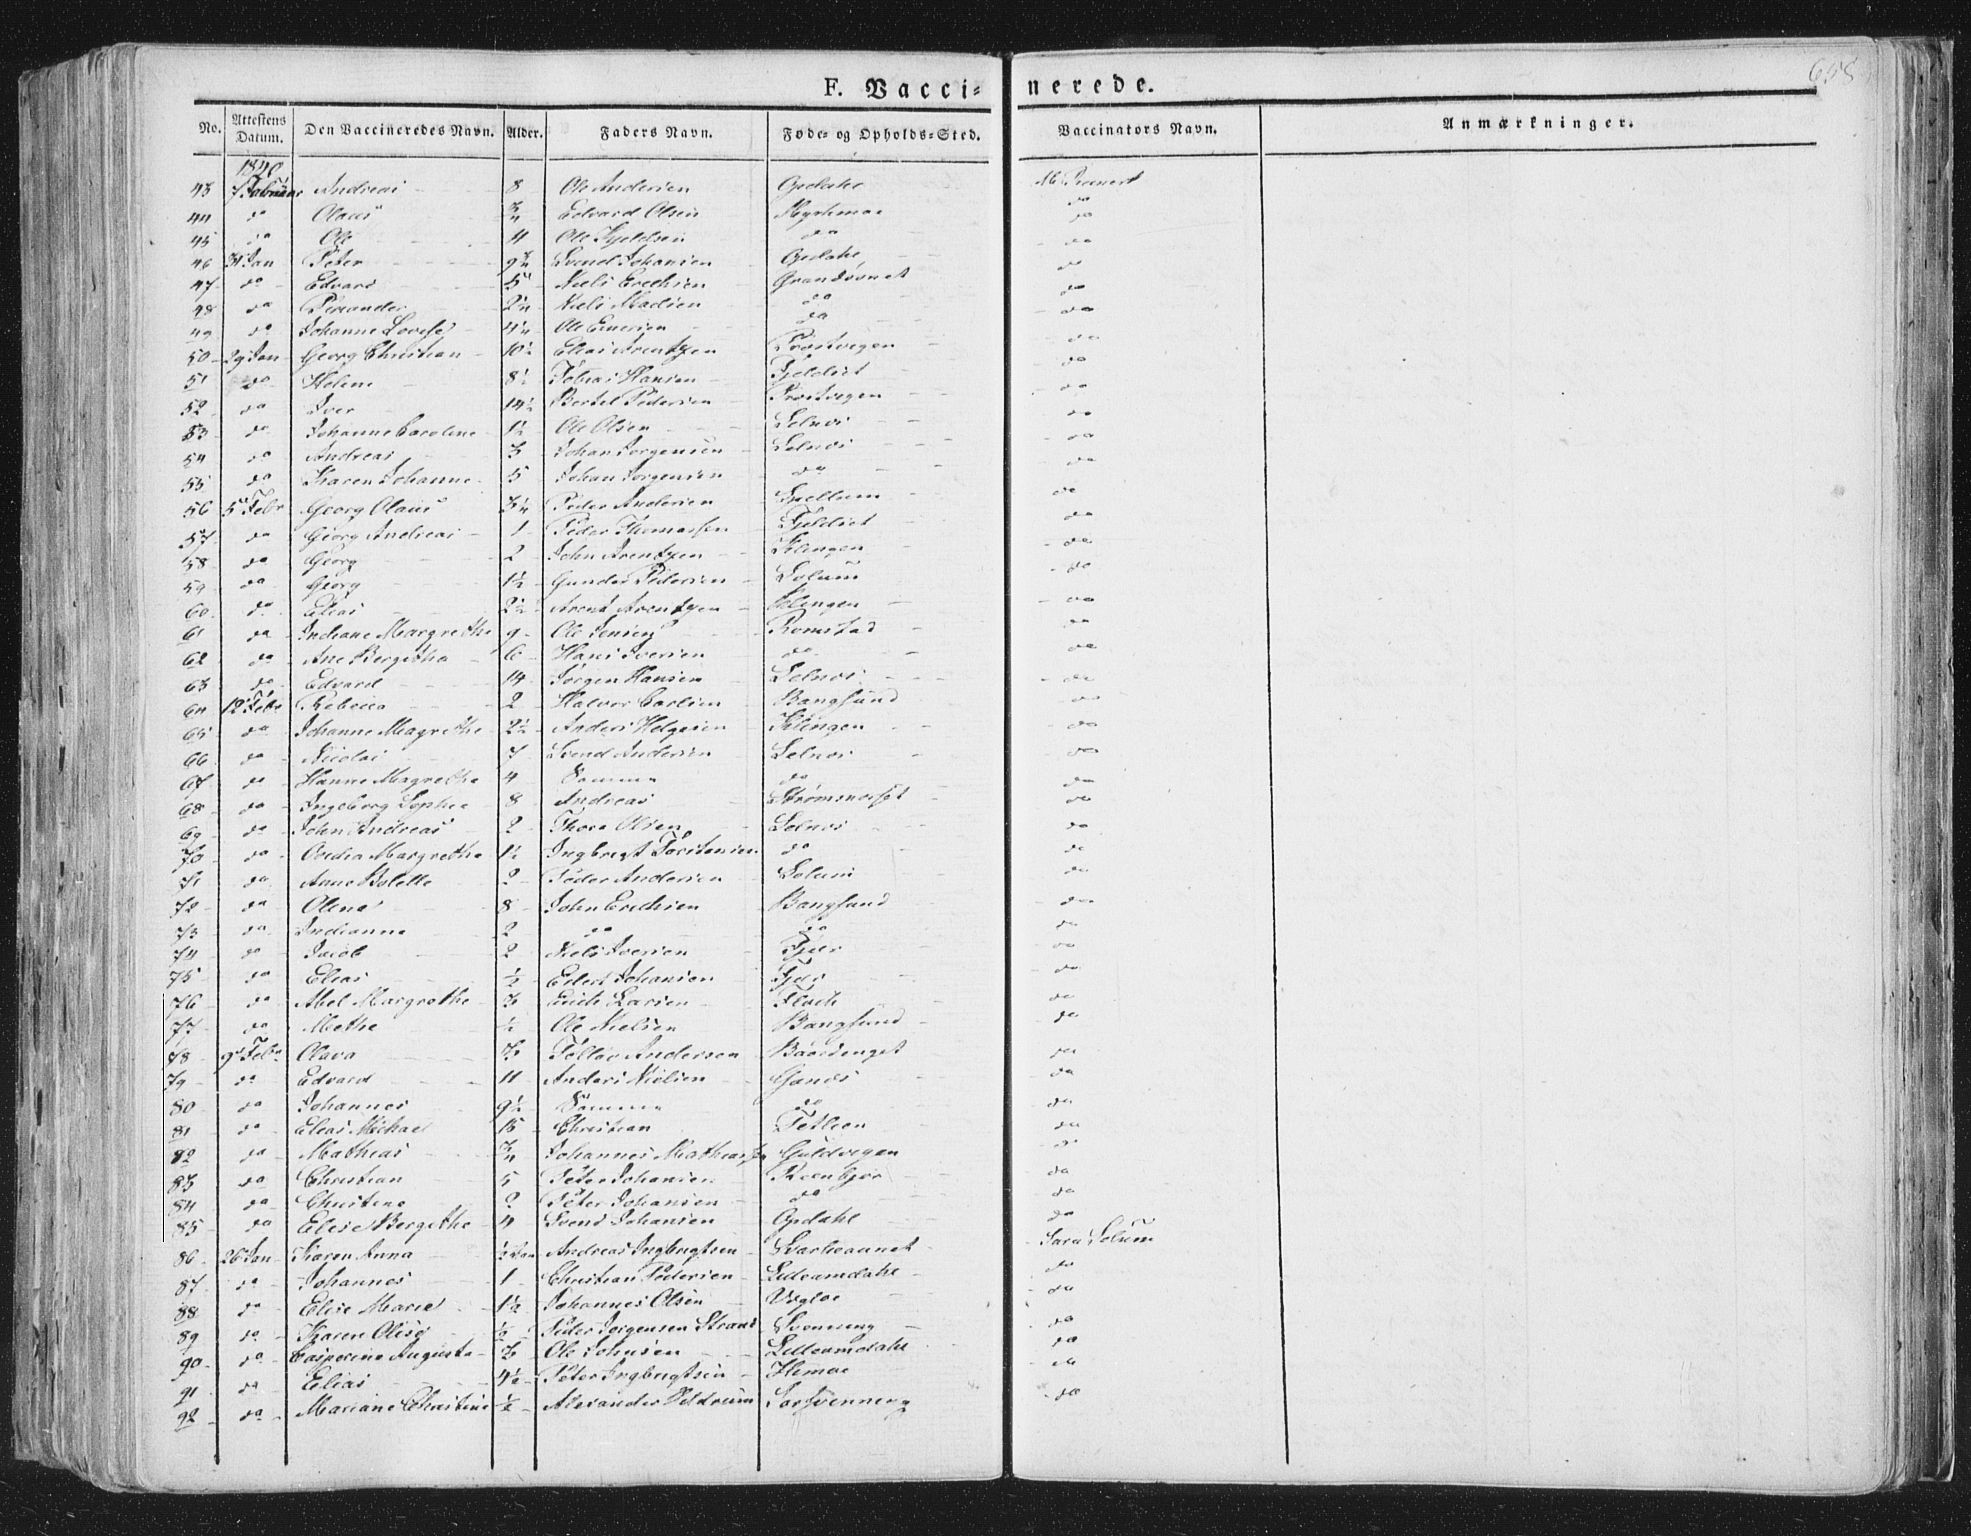 658
F. Vacci- nerede.
No. Attestens Datum. Den Vaccineredes Navn. Alder. Faders Navn. Føde- og Opholds-Sted. Vaccinators Navn. Anmærkninger.
1840
43 7 Februar Andreas 8 Ole Andersen Opdahl
44 do Olaus 3/4 Edvard Olsen Myrhmoe do
45 do Ole 4 Ole do do
46 31 Jan Peter Svend Johansen Opdahl do
47 do Edvard 5 Niels Erichsen do
48 do 2 1/4 Niels Madsen do do
49 do Johanne Lovise 4 1/4 Ole do do
50 29 Jan Georg Christian 10 1/2 Elias Arentzen Prostvegen do
51 do Helene 8 1/2 Tobias Hansen do
52 do Iver 14 1/2 Bertel Pedersen Prostvegen do
53 do Johanne Caroline 1 1/2 Ole Olsen Selnes do
54 do Andreas 3 Johan Jørgensen Selnes do
55 do Karen Johanne 5 Johan Jørgensen do do
56 5 Febr Georg Olaus 3 1/4 Peder Andersen Spillum do
57 do Georg Andreas 1 Peder Thomassen do
58 do Georg 2 John Arentzen Klingen do
59 do Georg 1 1/2 Gunder Pedersen Solum do
60 do Elias 2 1/2 Arent Arentzen Klingen do
61 do Indiane Margrethe 9 Ole Jensen Romstad do
62 do Ane Bergitha 6 Hans Iversen do do
63 do Edvard 14 Jørgen Hansen Selnes do
64 12 Febr Rebecca 2 Halvor Carlsen Bangsund do
65 do Johanne Magrethe 2 1/2 Anders Helgesen Klingen do
66 do Nicolai 7 Svend Andersen Selnes do
67 do Hanne Magrethe 4 Samme do do
68 do Ingeborg Sophie 8 Andreas Strømsnæset do
69 do John Andreas 2 Thore Olsen Selnes do
70 do Ovedia Margrethe 1 1/2 Ingbrigt Torstensen do do
71 do Anne Bolette 2 Peder Andersen Solum do
72 do Olina 8 John Erichsen Bangsund do
73 do Indianna 2 do do do
74 do Jacob 2 Niels Iversen do
75 do Elias 1/2 Edert Johansen do
76 do Abel Margrethe Erich Larsen Flach do
77 do Methe 1/2 Ole Nielsen Bangsund do
78 9 Febr Olava Andersen do
79 do Edvard 11 Anders Nielsen do
80 do Johannes 9 1/2 Samme do do
81 do Elias Michael 15 Christian Tetlien do
82 do Mathias 3/4 Johannes Mathiassen Guldvegen do
83 do Christian 5 Peter Johansen do
84 do Christine 2 Peter Johansen do do
85 do Elise Bergithe 4 Svend Johansen Opdahl do
86 26 Jan Karen Anna Andreas Ingbrigtsen Sara Solum
87 do Johannes 1 Christian Pedersen Lilleamdahl do
88 do Elise Marie 1 1/2 Johannes Olsen do
89 do Karen Olise 1/2 Peder Jørgensen Strand Svenning do
90 do Casperine Augusta Ole Johnsen Lilleamdahl do
91 do Elias 4 1/2 Peter Ingbrigtsen do
92 do Mariane Christine 1/2 Alexander Sørsvenning do